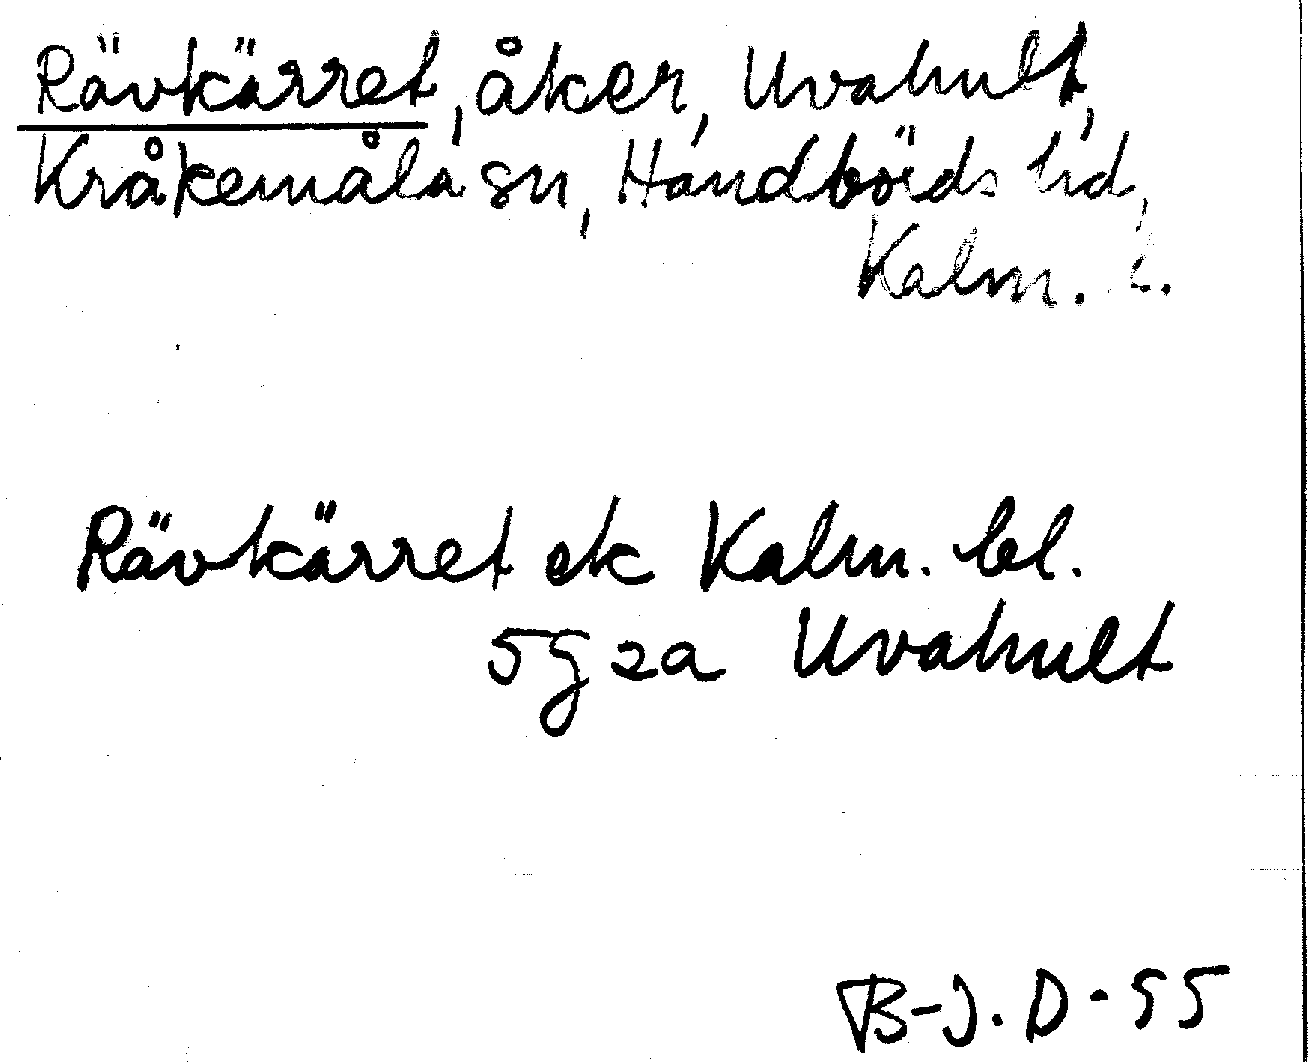 Rävkärret, åker, Uvahult,
Kråkemåla sn, Handbörds hd,
Kalm. l.
Rävkärret ek Kalm. bl.
5g2a Uvahult
B-J. D - 55